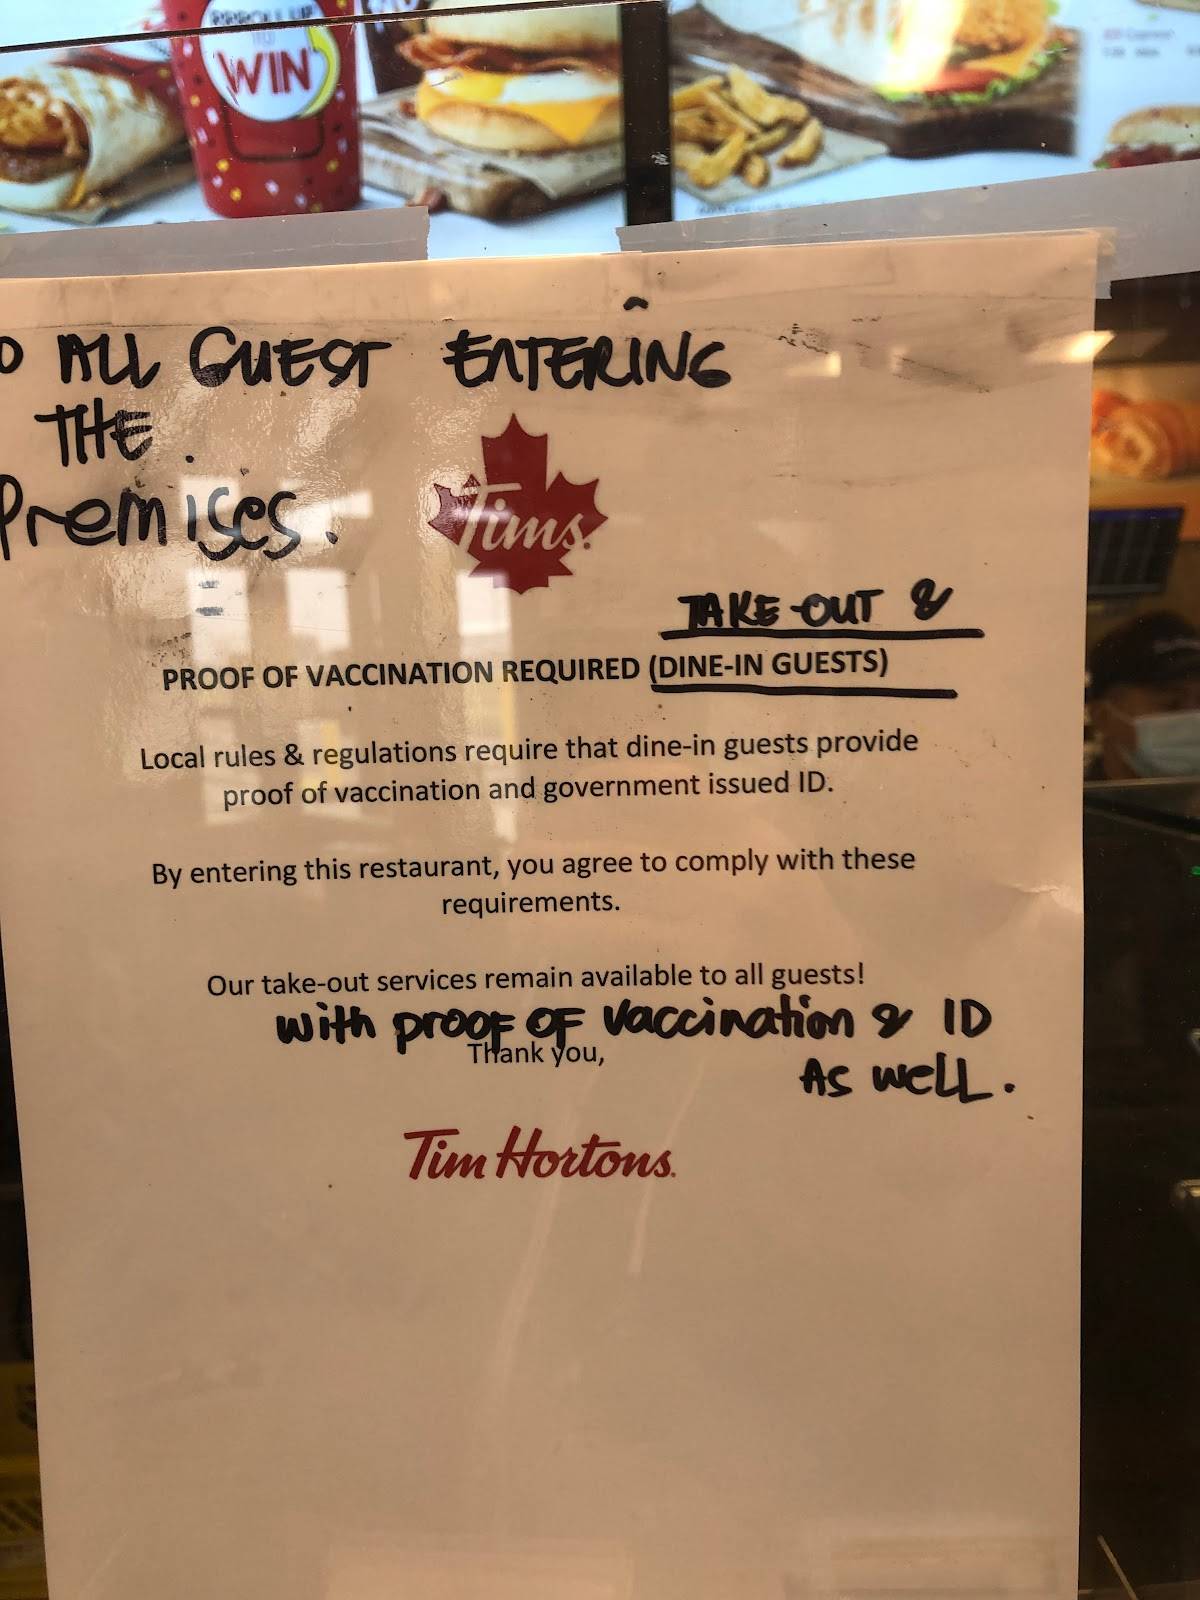 WIN
ALL GUEST ENTERING
THE.
Premises.
Tims.
TAKE-OUT &
PROOF OF VACCINATION REQUIRED (DINE-IN GUESTS)
Local rules & regulations require that dine-in guests provide
proof of vaccination and government issued ID.
By entering this restaurant, you agree to comply with these
requirements.
Our take-out services remain available to all guests!
with proof of vaccination & ID
As well.
Thank you,
Tim Hortons.